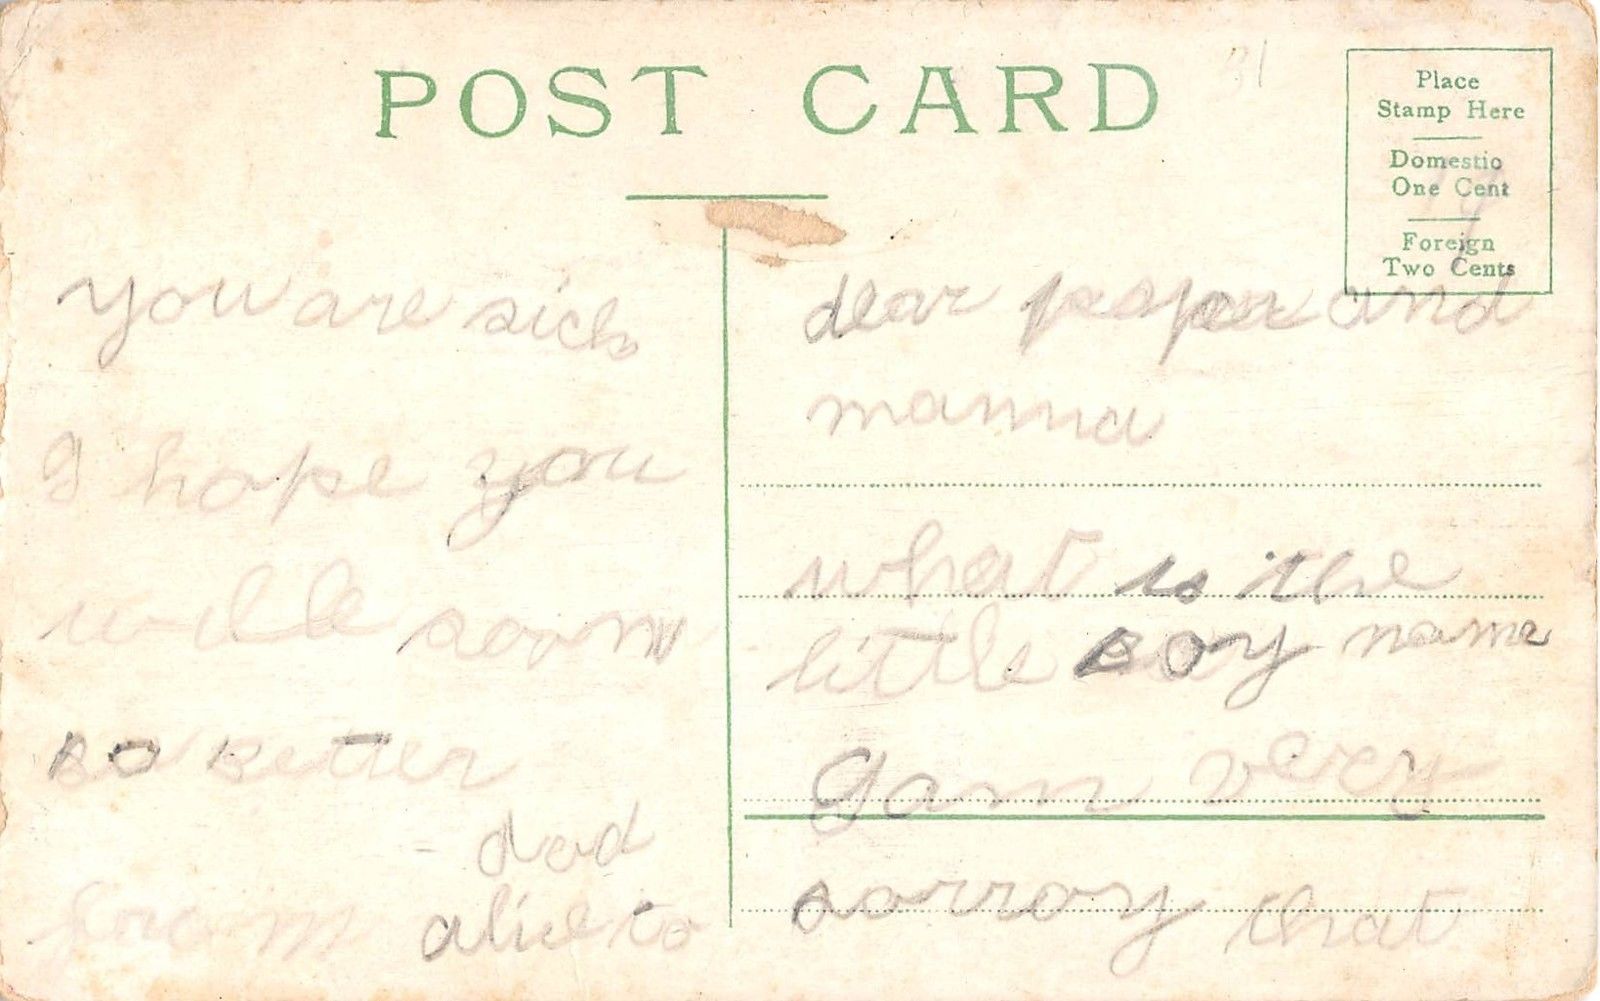 POST CARD
Place
Stamp Here
Domestic
One Cent
Foreign
Two Cents
dear papa and
mamma
what is the
little boy name
I am very
sorroy that
you are sick
I hope you
will soon
be better
dad
from alice to